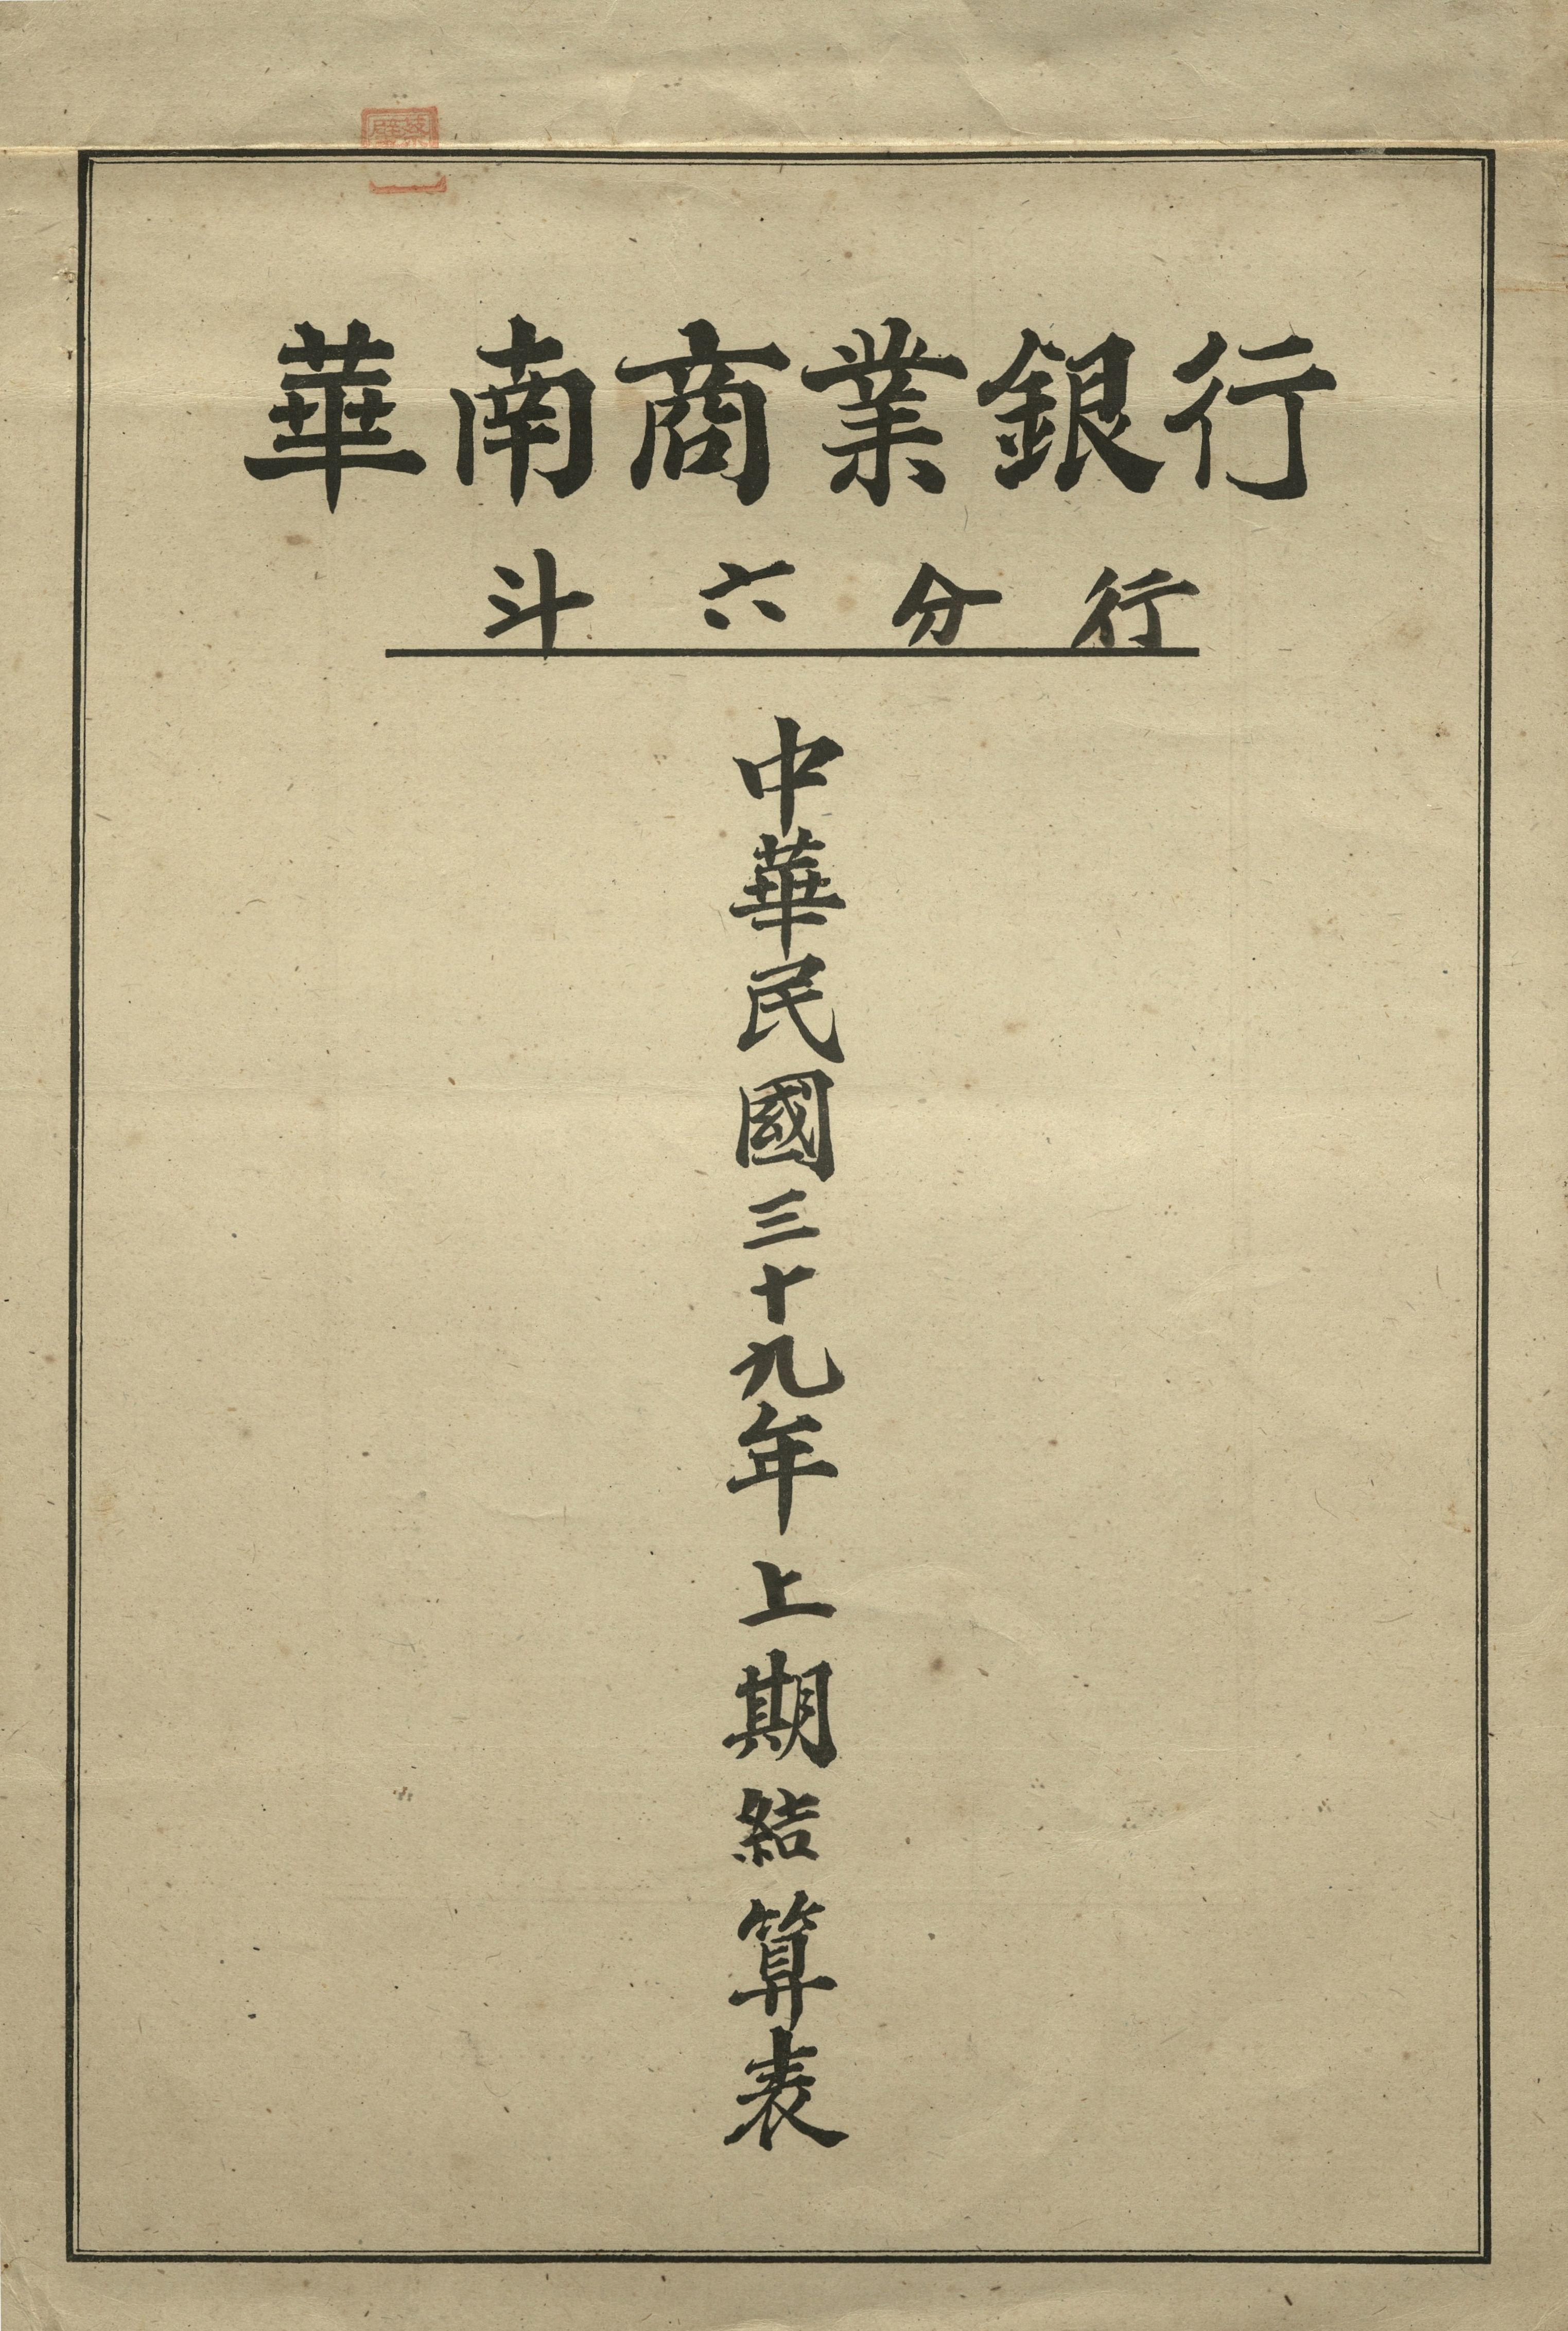 華南商業銀行
斗六分行
中華民國三十九年上期結算表